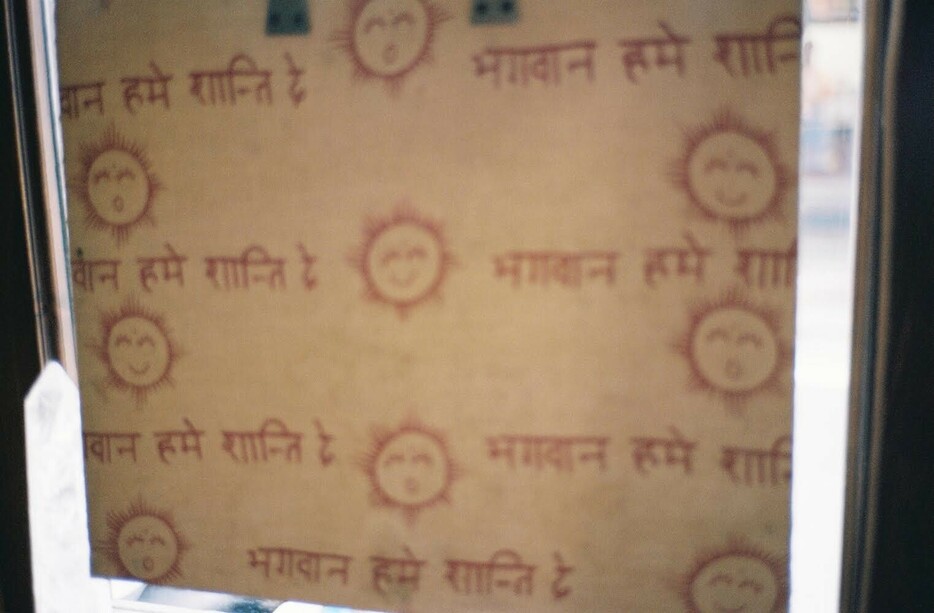 वान हमे शान्ति दे भगवान हमे शान्ति
वान हमे शान्ति दे भगवान हमे शा
वान हमे शान्ति दे भगवान हमे शान्
भगवान हमे शान्ति दे